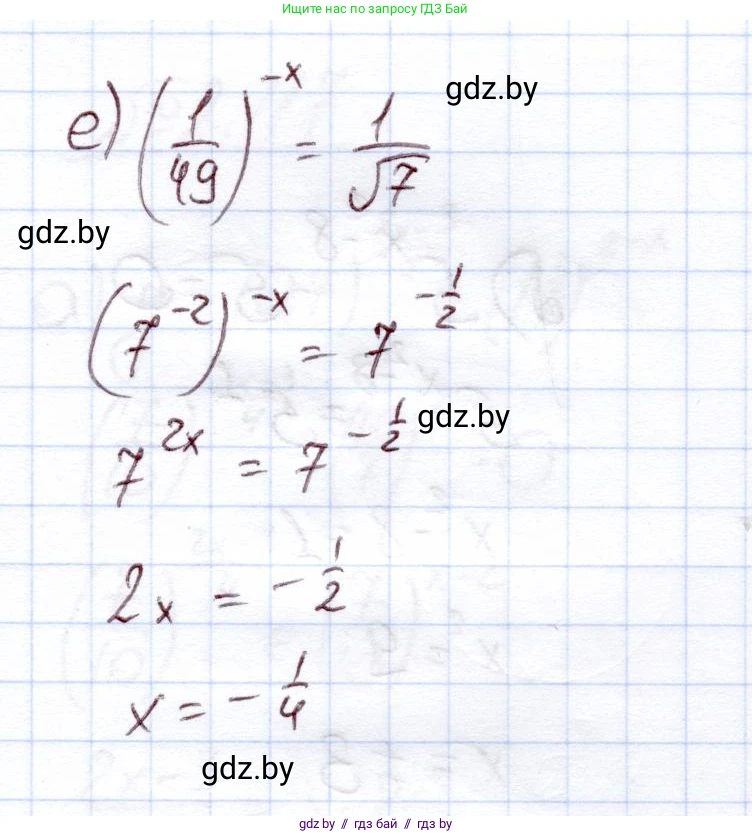 Ищите нас по запросу ГДЗ Бай
gdz.by
е) (1/49)^(-x) = 1/√7
gdz.by
(7^(-2))^(-x) = 7^(-1/2)
gdz.by
7^(2x) = 7^(-1/2)
2x = -1/2
x = -1/4
gdz.by
gdz.by // гдз бай // гдз by